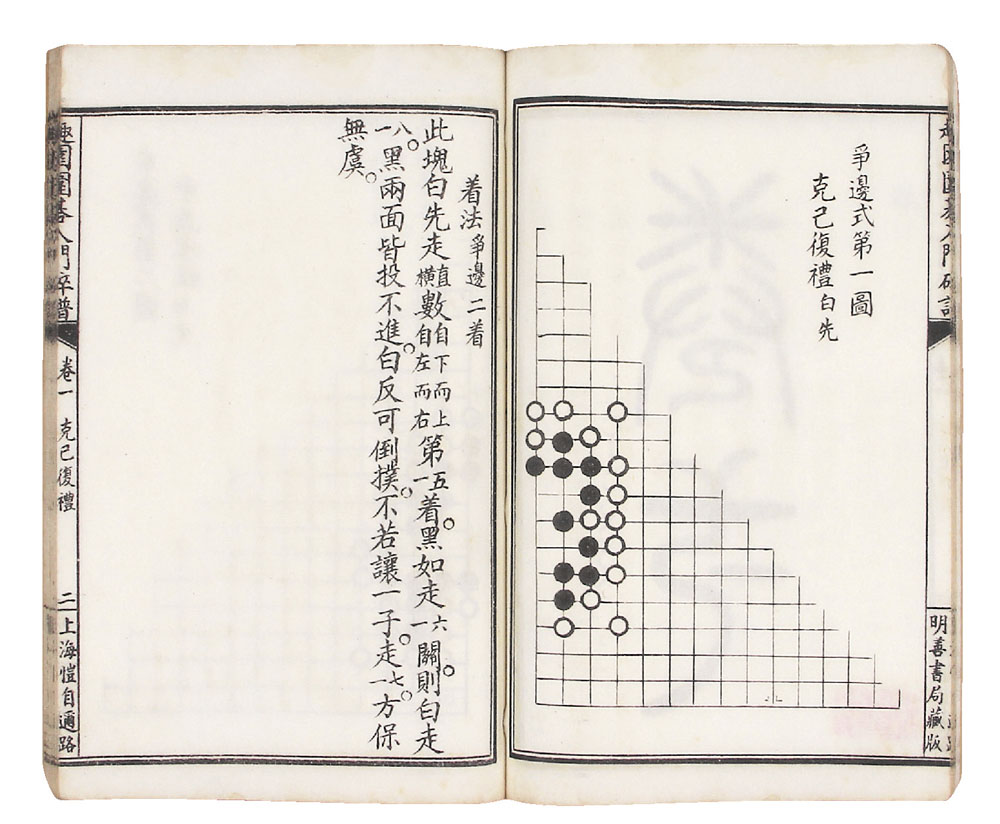 爭邊式第一圖
克己復禮白先
着法爭邊二着
此塊白先走直橫數自下而上自左而右第五一着。黑如走六一關。則白走
八一。黑兩面皆投不進。白反可倒撲。不若讓一子。走七一。方保
無虞。
明善書局藏版
趣園圍棊入門
卷一 克己復禮
二
上海愷自邇路